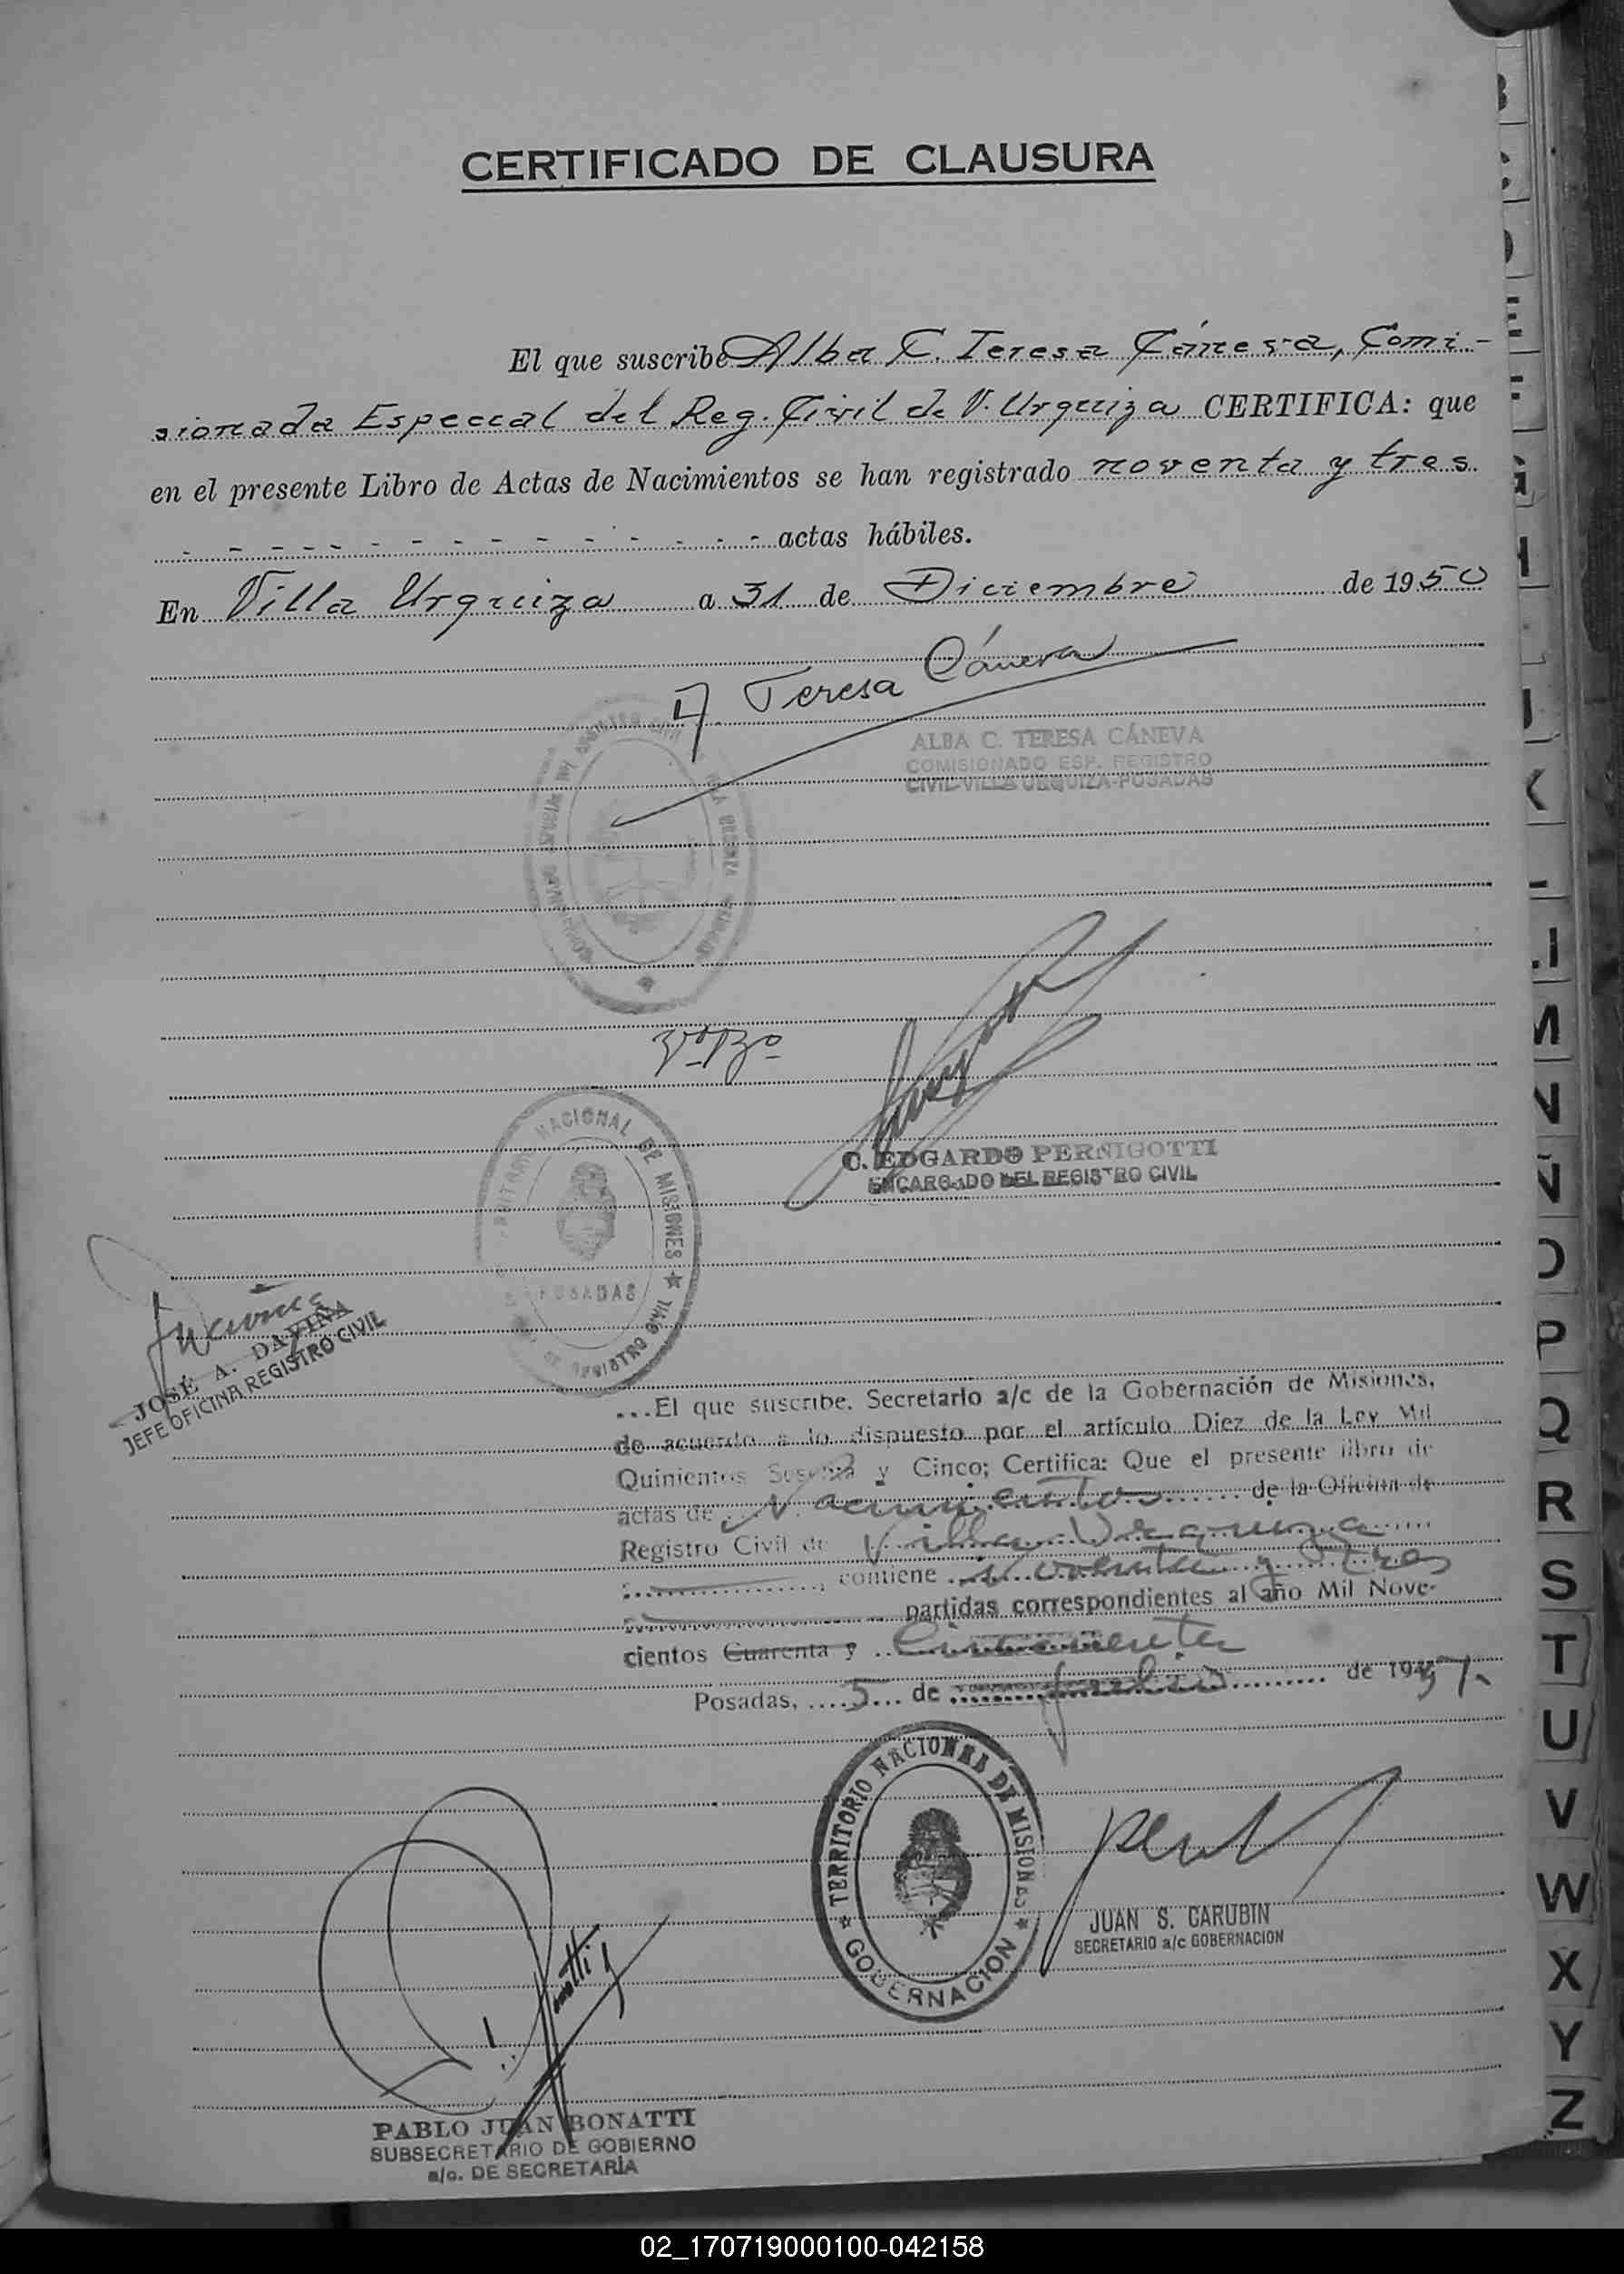 CERTIFICADO DE CLAUSURA
El que suscribe Alba C. Teresa Cáneva, Comi-
sionada Especial del Reg. Civil de V. Urquiza CERTIFICA: que
en el presente Libro de Actas de Nacimientos se han registrado noventa y tres
- - - - - - - - - - - - - - - actas hábiles.
En Villa Urquiza a 31 de Diciembre de 1950
A. Teresa Cáneva
ALBA C. TERESA CÁNEVA
COMISIONADO ESP. REGISTRO
CIVIL-VILLA URQUIZA-POSADAS
VºBº
C. EDGARDO PERNIGOTTI
ENCARGADO DEL REGISTRO CIVIL
NACIONAL DE MISIONES ★
POSADAS
REGISTRO CIVIL
JOSÉ A. DAVIÑA
JEFE OFICINA REGISTRO CIVIL
...El que suscribe. Secretario a/c de la Gobernación de Misiones,
de acuerdo a lo dispuesto por el artículo Diez de la Ley Mil
Quinientos Sesenta y Cinco; Certifica: Que el presente libro de
actas de Nacimientos de la Oficina de
Registro Civil de Villa Urquiza
contiene Noventa y Tres
partidas correspondientes al año Mil Nove-
cientos Cuarenta y Cincuenta
Posadas, 5 de Julio de 1957.
★ TERRITORIO NACIONAL DE MISIONES ★
GOBERNACION
JUAN S. CARUBIN
SECRETARIO a/c GOBERNACION
PABLO JUAN BONATTI
SUBSECRETARIO DE GOBIERNO
a/c. DE SECRETARÍA
B
C
D
E
F
G
H
I
J
K
L
M
N
Ñ
O
P
Q
R
S
T
U
V
W
X
Y
Z
02_170719000100-042158